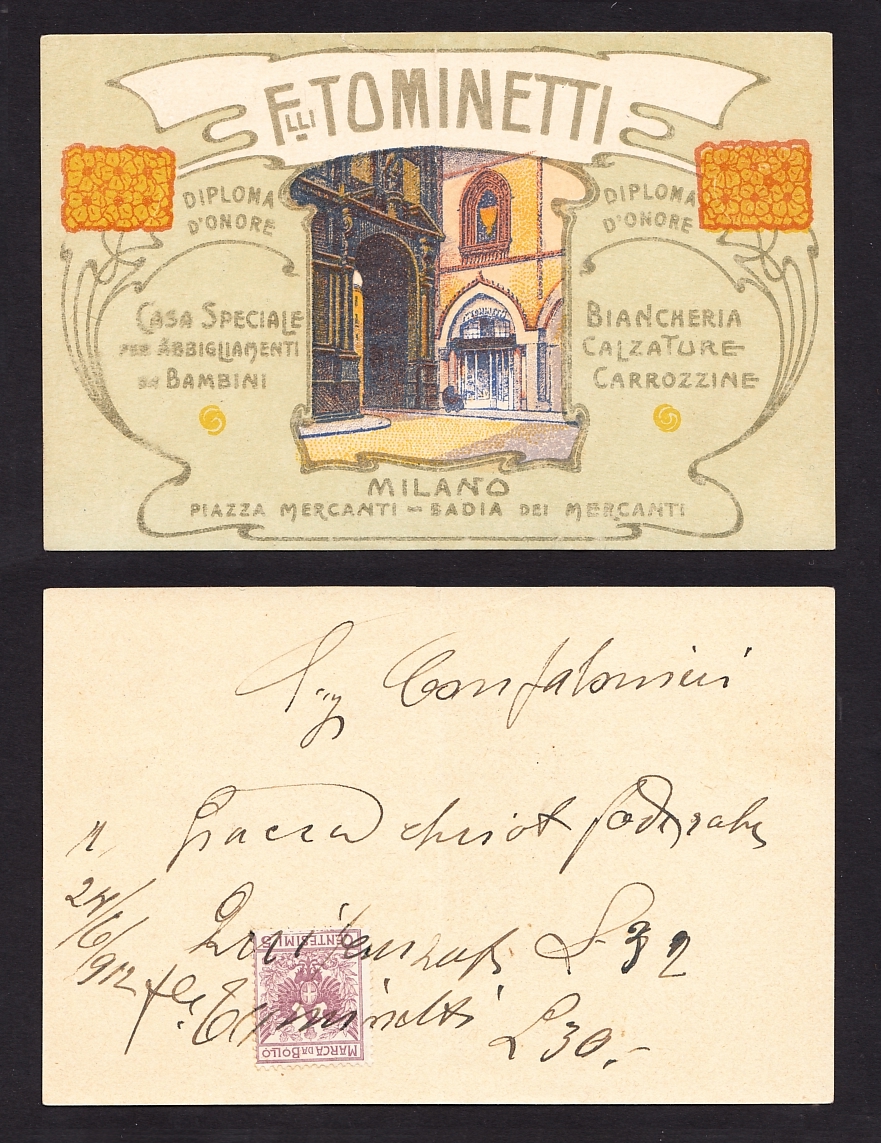 FLLI TOMINETTI
DIPLOMA
D'ONORE
DIPLOMA
D'ONORE
CASA SPECIALE
PER ABBIGLIAMENTI
DA BAMBINI
BIANCHERIA
CALZATURE
CARROZZINE
TOMINETTI
MILANO
PIAZZA MERCANTI - BADIA DEI MERCANTI
Sig Confalonieri
1 Giacca
24/6/912
L 32
flli Tominetti
L 30.-
CENTESIMI 5
MARCA DA BOLLO